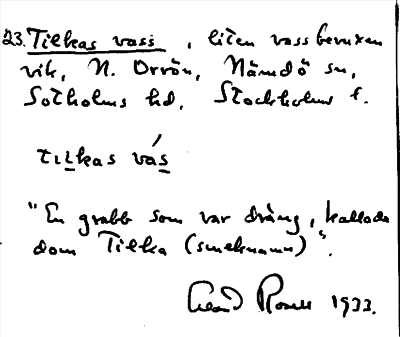 23. Tilkas vass, liten vassbevuxen
vik, N. Orrön, Nämdö sn,
Sotholms hd, Stockholms l.
tılkas vás
"En grabb som var dräng, kallade
dom Tilka (smeknamn)".
1933.